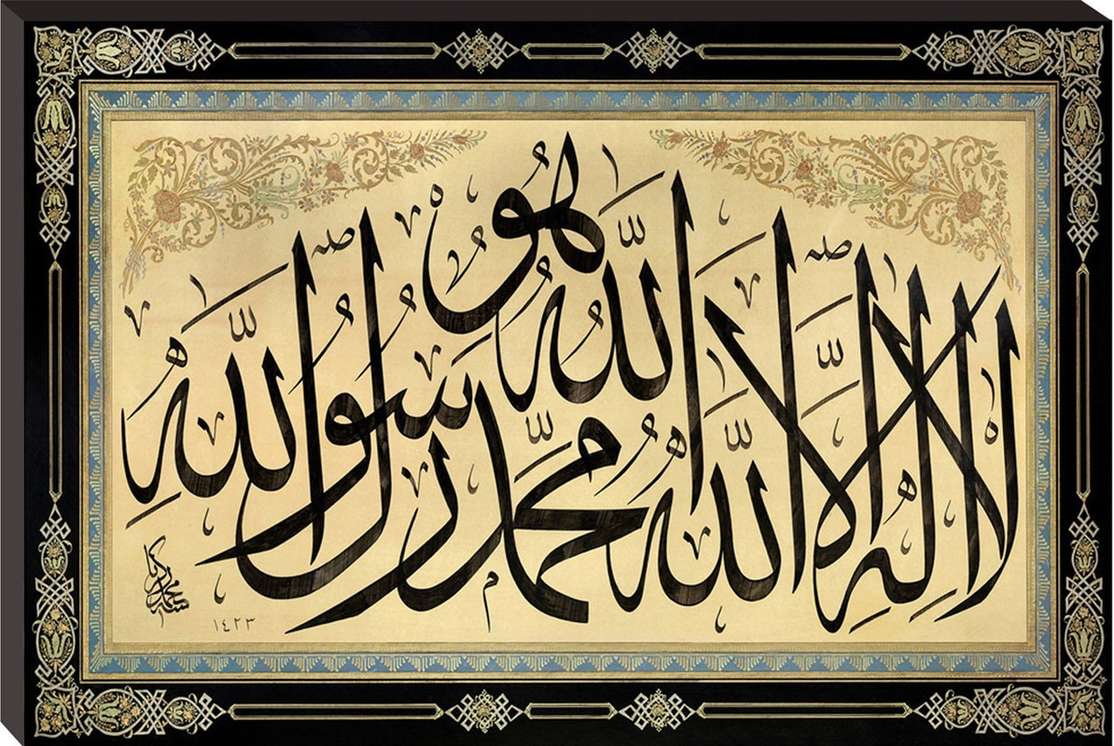 هو الله
لا اله الا الله محمد رسول الله
محمد زكريا
١٤٢٣